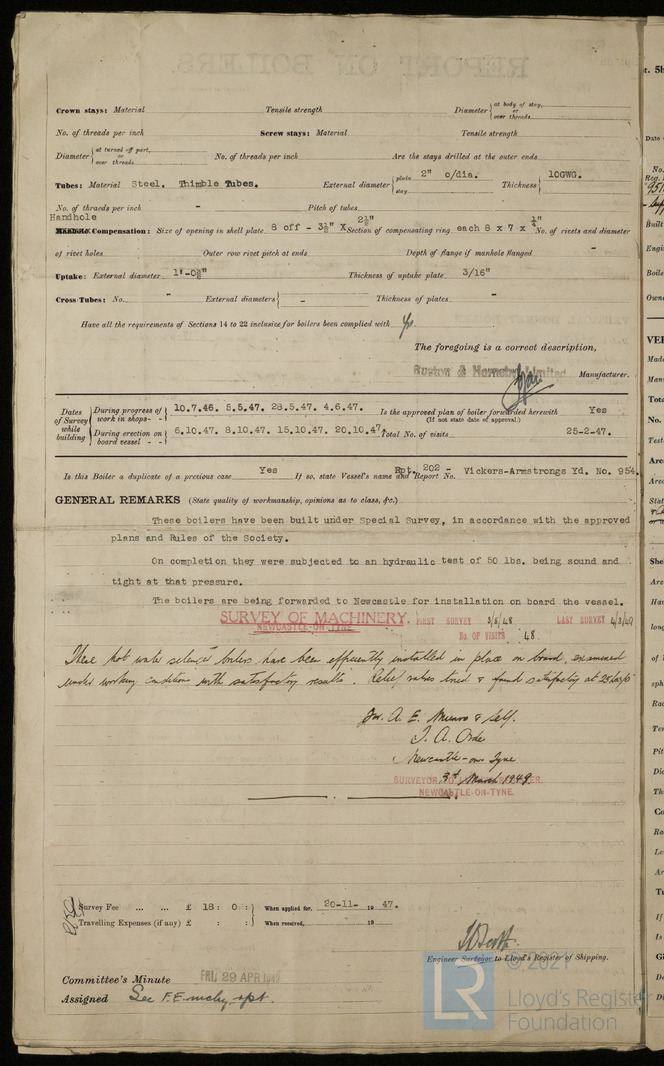 Crown stays: Material Tensile strength Diameter { at body of stay, or over threads
No. of threads per inch Screw stays: Material Tensile strength
Diameter { at turned off part, or over threads No. of threads per inch Are the stays drilled at the outer ends
Tubes: Material Steel. Thimble Tubes. External diameter { plain 2" o/dia. stay Thickness { 10GWG.
No. of threads per inch - Pitch of tubes
Handhole Compensation: Size of opening in shell plate 8 off - 3½" X 2½" Section of compensating ring each 8 x 7 x ¼" No. of rivets and diameter
of rivet holes Outer row rivet pitch at ends Depth of flange if manhole flanged -
Uptake: External diameter 1'-0¾" Thickness of uptake plate 3/16"
Cross Tubes: No. - External diameters { - Thickness of plates -
Have all the requirements of Sections 14 to 22 inclusive for boilers been complied with Yes
The foregoing is a correct description,
Ruston & Hornsby Limited Manufacturer.
Dates of Survey while building { During progress of work in shops - - } 10.7.46. 5.5.47. 28.5.47. 4.6.47. Is the approved plan of boiler forwarded herewith (If not state date of approval.) Yes
{ During erection on board vessel - - } 6.10.47. 8.10.47. 15.10.47. 20.10.47. Total No. of visits 25-2-47.
Is this Boiler a duplicate of a previous case Yes If so, state Vessel's name and Report No. Rpt. 202 - Vickers-Armstrongs Yd. No. 954.
GENERAL REMARKS (State quality of workmanship, opinions as to class, &c.)
These boilers have been built under Special Survey, in accordance with the approved
plans and Rules of the Society.
On completion they were subjected to an hydraulic test of 50 lbs. being sound and
tight at that pressure.
The boilers are being forwarded to Newcastle for installation on board the vessel.
SURVEY OF MACHINERY. FIRST SURVEY 3/5/48 LAST SURVEY 4/3/49
NEWCASTLE-ON-TYNE No. OF VISITS 48.
These hot water boilers have been efficiently installed in place on board, examined
under working conditions with satisfactory results. Relief valves tried & found satisfactory at 25
for A. E. Munro & Self.
J. A. Orde
Newcastle-on-Tyne
3rd March 1949.
NEWCASTLE-ON-TYNE.
Survey Fee ... ... £ 18 : 0 : When applied for, 20-11- 19 47.
Travelling Expenses (if any) £ : : When received, 19
Engineer Surveyor to Lloyd's Register of Shipping.
Committee's Minute FRI. 29 APR 1949
Assigned See F.E. mchy rpt.
LR © 2021
Lloyd's Register
Foundation